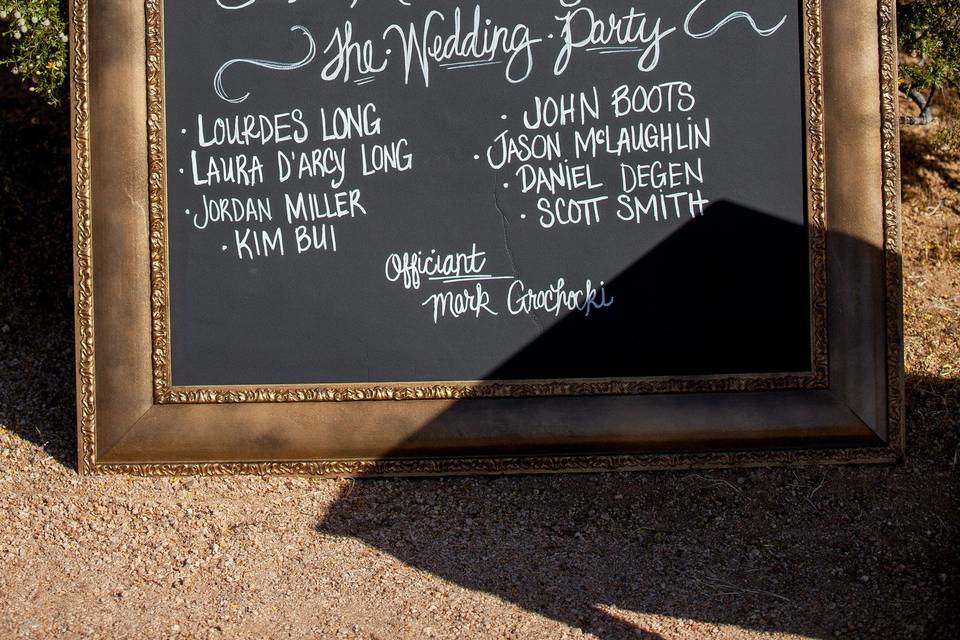 The Wedding Party
· LOURDES LONG
· LAURA D'ARCY LONG
· JORDAN MILLER
· KIM BUI
· JOHN BOOTS
· JASON McLAUGHLIN
· DANIEL DEGEN
· SCOTT SMITH
Officiant
Mark Grochocki